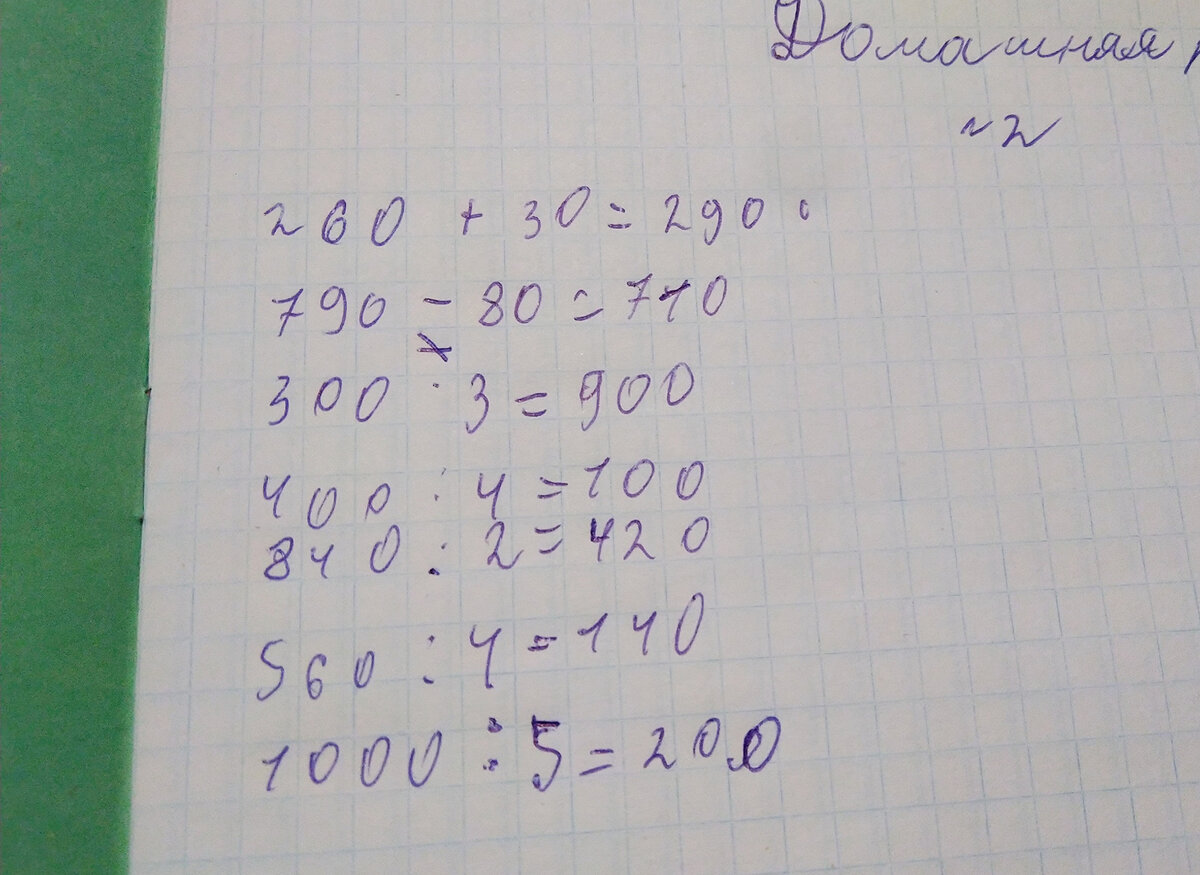 Домашняя
~2
260 + 30 = 290
790 - 80 = 710
300 · 3 = 900
400 : 4 = 100
840 : 2 = 420
560 : 4 = 140
1000 : 5 = 200